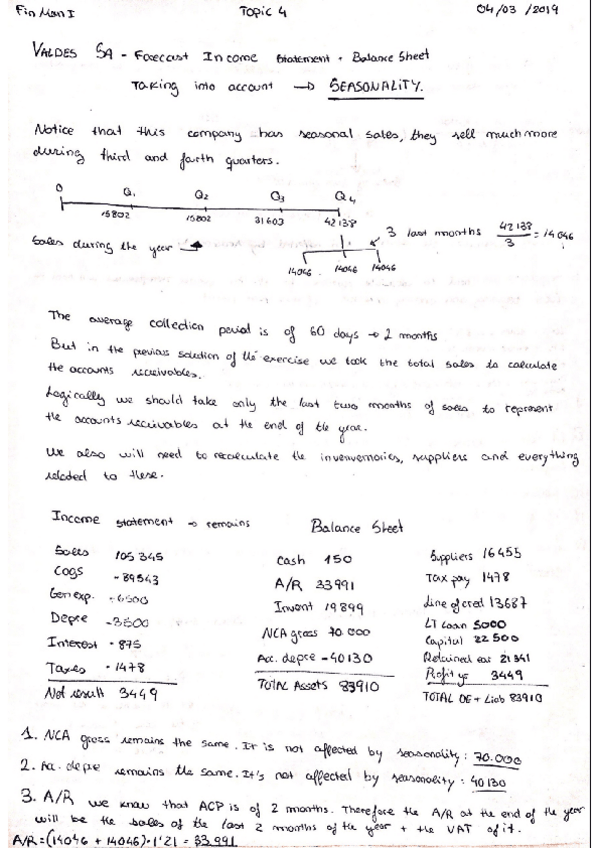 Fin Man I Topic 4 04/03/2019
VALDES SA - Forecast Income Statement + Balance Sheet
Taking into account → SEASONALITY.
Notice that this company has seasonal sales, they sell much more
during third and fourth quarters.
0 Q1 Q2 Q3 Q4
15802 15802 31603 42138
3 last months 42138/3 = 14046
Sales during the year →
14046 14046 14046
The average collection period is of 60 days → 2 months
But in the previous solution of the exercise we took the total sales to calculate
the accounts receivables.
Logically we should take only the last two months of sales to represent
the accounts receivables at the end of the year.
We also will need to recalculate the invenvemories, suppliers and everything
related to these.
Income statement → remains Balance Sheet
Sales 105 345 Cash 150 Suppliers 16455
COGS - 89543 A/R 33991 Tax pay 1478
Gen exp. - 6500 Invent 19899 Line of cred 13687
Depre - 3500 NCA gross 70 000 LT Loan 5000
Interest - 875 Acc. depre - 40130 Capital 22 500
Taxes - 1478 TOTAL Assets 83910 Retained ear 21341
Net result 3449 Profit yr 3449
TOTAL OE + Liab 83910
1. NCA gross remains the same. It is not affected by seasonality: 70.000
2. Ac. depre remains the same. It's not affected by seasonality: 40130
3. A/R we know that ACP is of 2 months. Therefore the A/R at the end of the year
will be the sales of the last 2 months of the year + the VAT of it.
A/R = (14046 + 14046) · 1'21 = 33.991